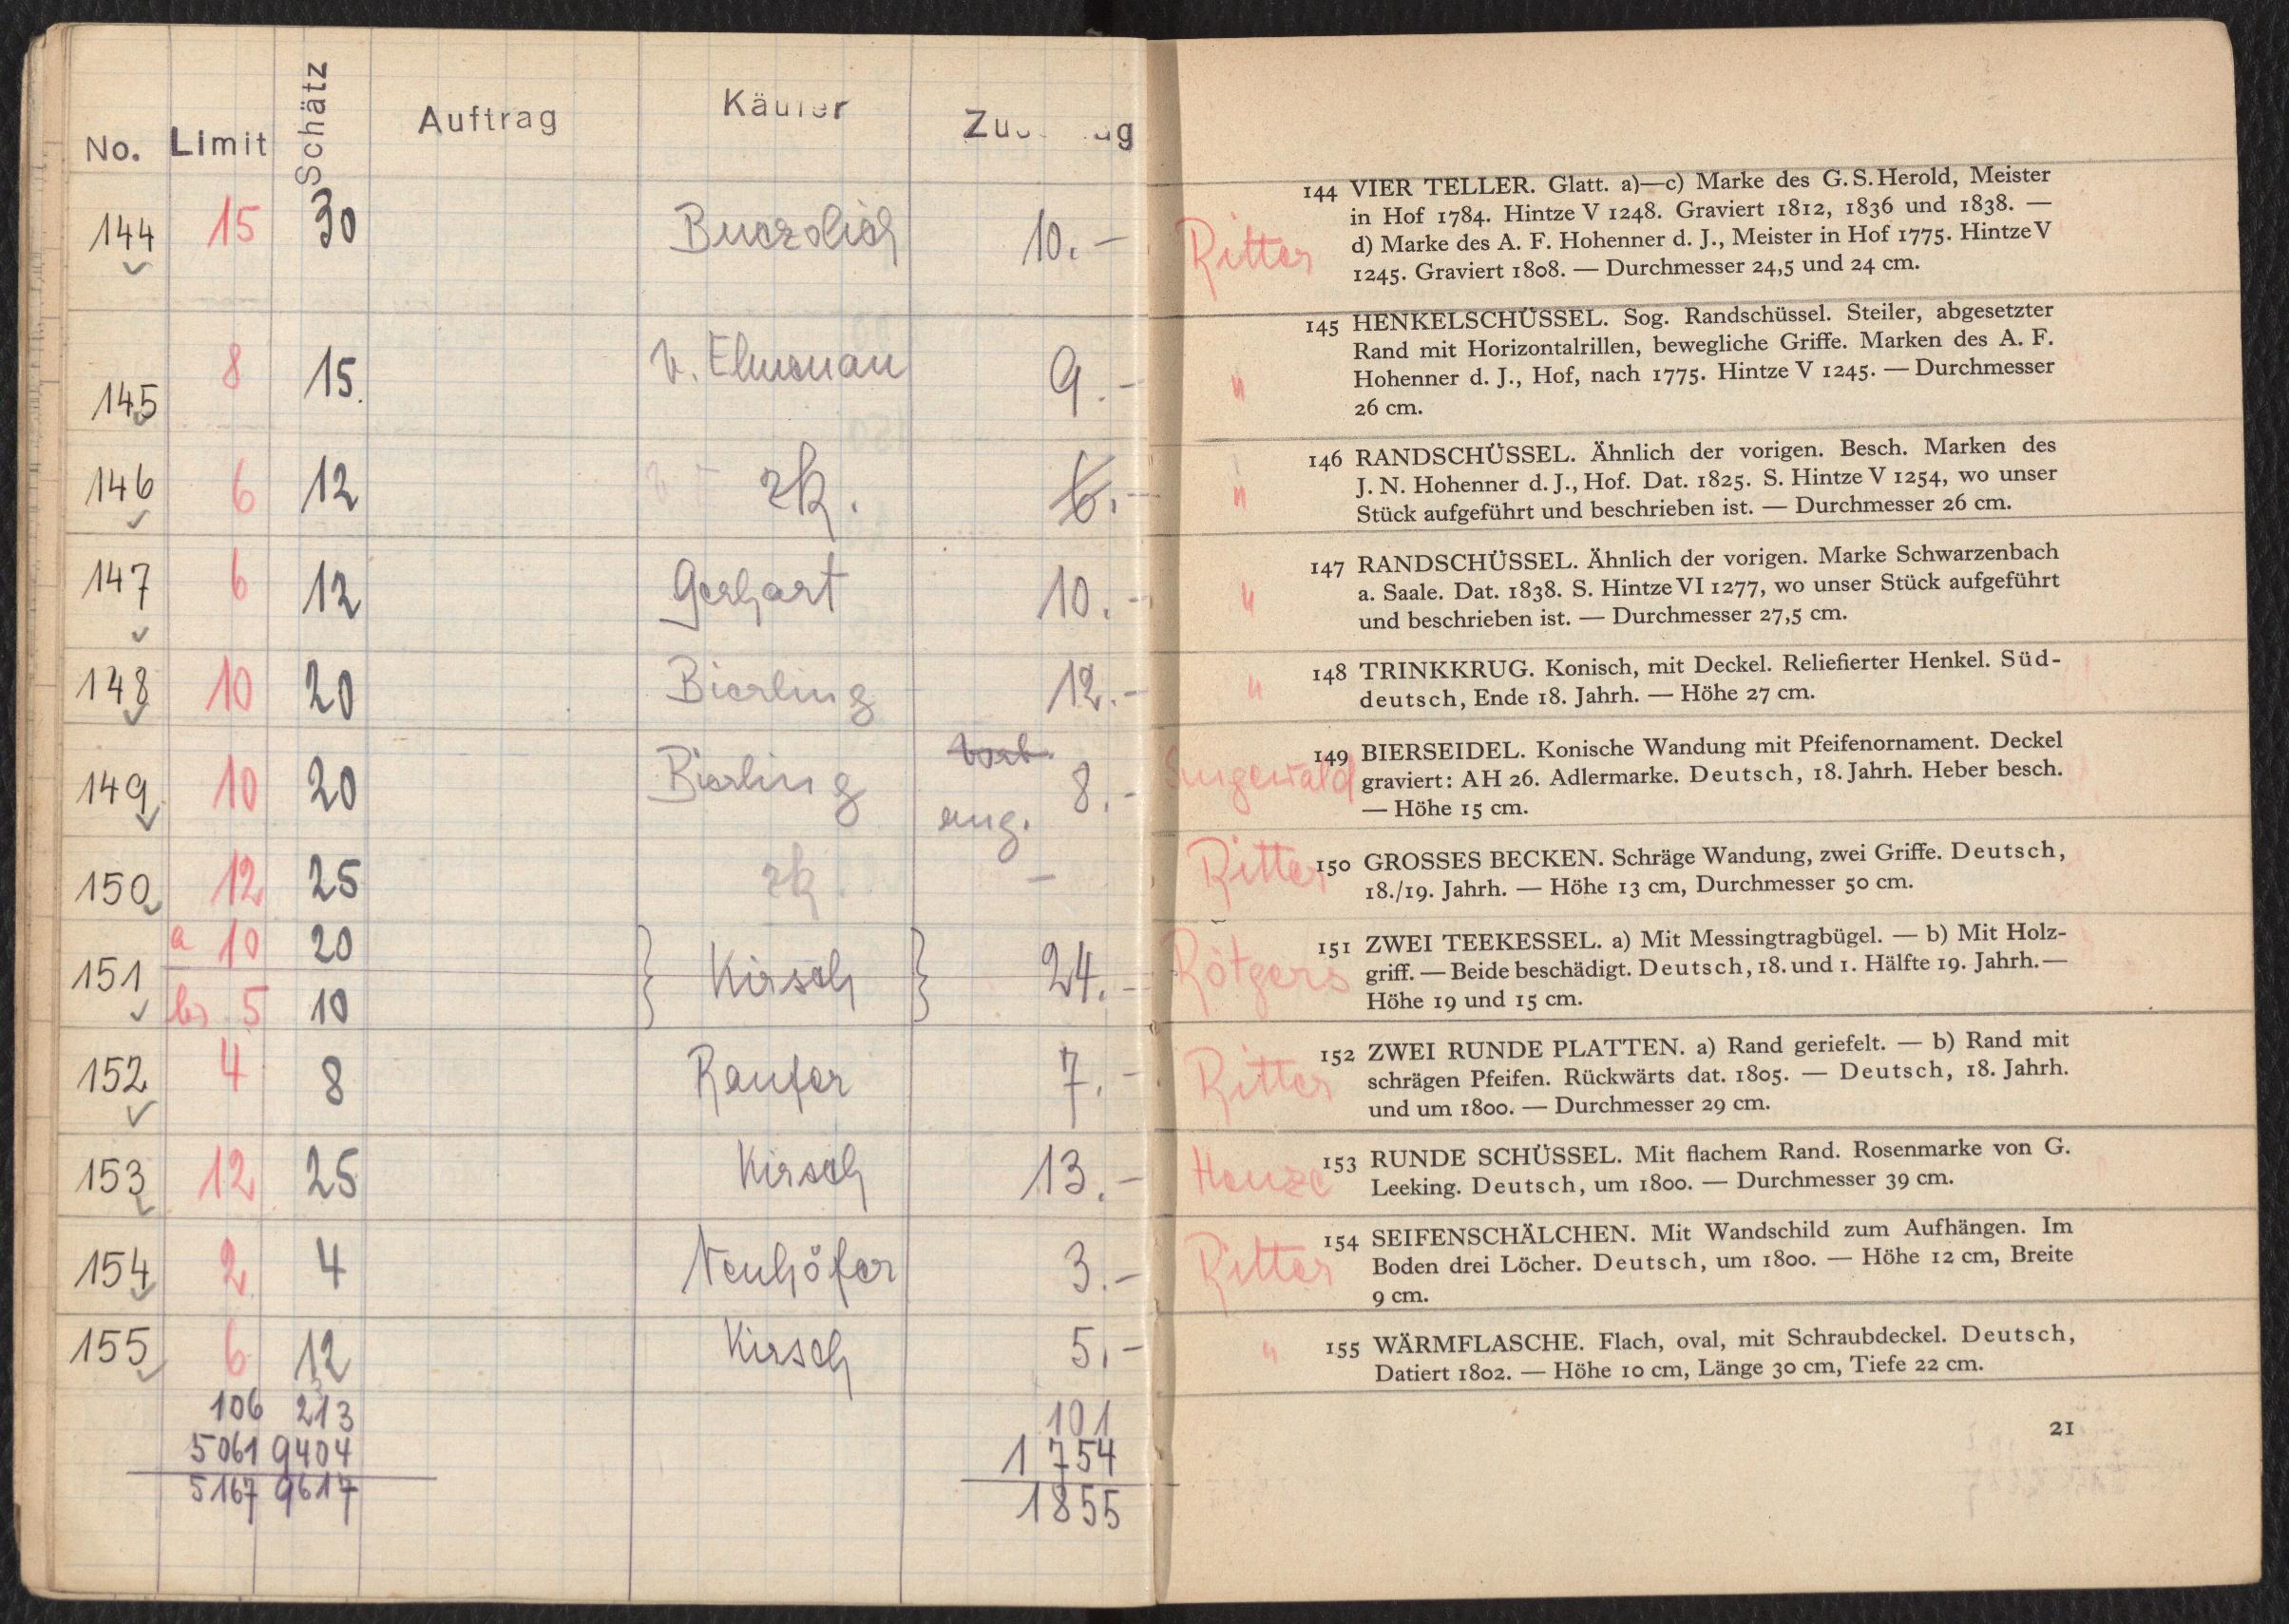 No. Limit Schätz Auftrag Käufer Zu ag
144 15 30 10.-
145 8 15. v. Elmenau 9.-
146 6 12 zk. 6.-
147 6 12 Gerhart 10.-
148 10 20 Bierling 12.-
149 10 20 Bierling 8.-
150 12 25 zk. -
151 a 10 20 Kirsch 24.-
b 5 10
152 4 8 Raufer 7.-
153 12 25 Kirsch 13.-
154 2 4 Neuhöfer 3.-
155 6 12 Kirsch 5.-
106 213 101
5061 9404 1754
5167 9617 1855
Ritter
144 VIER TELLER. Glatt. a)—c) Marke des G. S. Herold, Meister
in Hof 1784. Hintze V 1248. Graviert 1812, 1836 und 1838. —
d) Marke des A. F. Hohenner d. J., Meister in Hof 1775. Hintze V
1245. Graviert 1808. — Durchmesser 24,5 und 24 cm.
"
145 HENKELSCHÜSSEL. Sog. Randschüssel. Steiler, abgesetzter
Rand mit Horizontalrillen, bewegliche Griffe. Marken des A. F.
Hohenner d. J., Hof, nach 1775. Hintze V 1245. — Durchmesser
26 cm.
"
146 RANDSCHÜSSEL. Ähnlich der vorigen. Besch. Marken des
J. N. Hohenner d. J., Hof. Dat. 1825. S. Hintze V 1254, wo unser
Stück aufgeführt und beschrieben ist. — Durchmesser 26 cm.
"
147 RANDSCHÜSSEL. Ähnlich der vorigen. Marke Schwarzenbach
a. Saale. Dat. 1838. S. Hintze VI 1277, wo unser Stück aufgeführt
und beschrieben ist. — Durchmesser 27,5 cm.
"
148 TRINKKRUG. Konisch, mit Deckel. Reliefierter Henkel. Süd-
deutsch, Ende 18. Jahrh. — Höhe 27 cm.
149 BIERSEIDEL. Konische Wandung mit Pfeifenornament. Deckel
graviert: AH 26. Adlermarke. Deutsch, 18. Jahrh. Heber besch.
— Höhe 15 cm.
Ritter
150 GROSSES BECKEN. Schräge Wandung, zwei Griffe. Deutsch,
18./19. Jahrh. — Höhe 13 cm, Durchmesser 50 cm.
Rötgers
151 ZWEI TEEKESSEL. a) Mit Messingtragbügel. — b) Mit Holz-
griff. — Beide beschädigt. Deutsch, 18. und 1. Hälfte 19. Jahrh. —
Höhe 19 und 15 cm.
Ritter
152 ZWEI RUNDE PLATTEN. a) Rand geriefelt. — b) Rand mit
schrägen Pfeifen. Rückwärts dat. 1805. — Deutsch, 18. Jahrh.
und um 1800. — Durchmesser 29 cm.
Henze
153 RUNDE SCHÜSSEL. Mit flachem Rand. Rosenmarke von G.
Leeking. Deutsch, um 1800. — Durchmesser 39 cm.
Ritter
154 SEIFENSCHÄLCHEN. Mit Wandschild zum Aufhängen. Im
Boden drei Löcher. Deutsch, um 1800. — Höhe 12 cm, Breite
9 cm.
"
155 WÄRMFLASCHE. Flach, oval, mit Schraubdeckel. Deutsch,
Datiert 1802. — Höhe 10 cm, Länge 30 cm, Tiefe 22 cm.
21